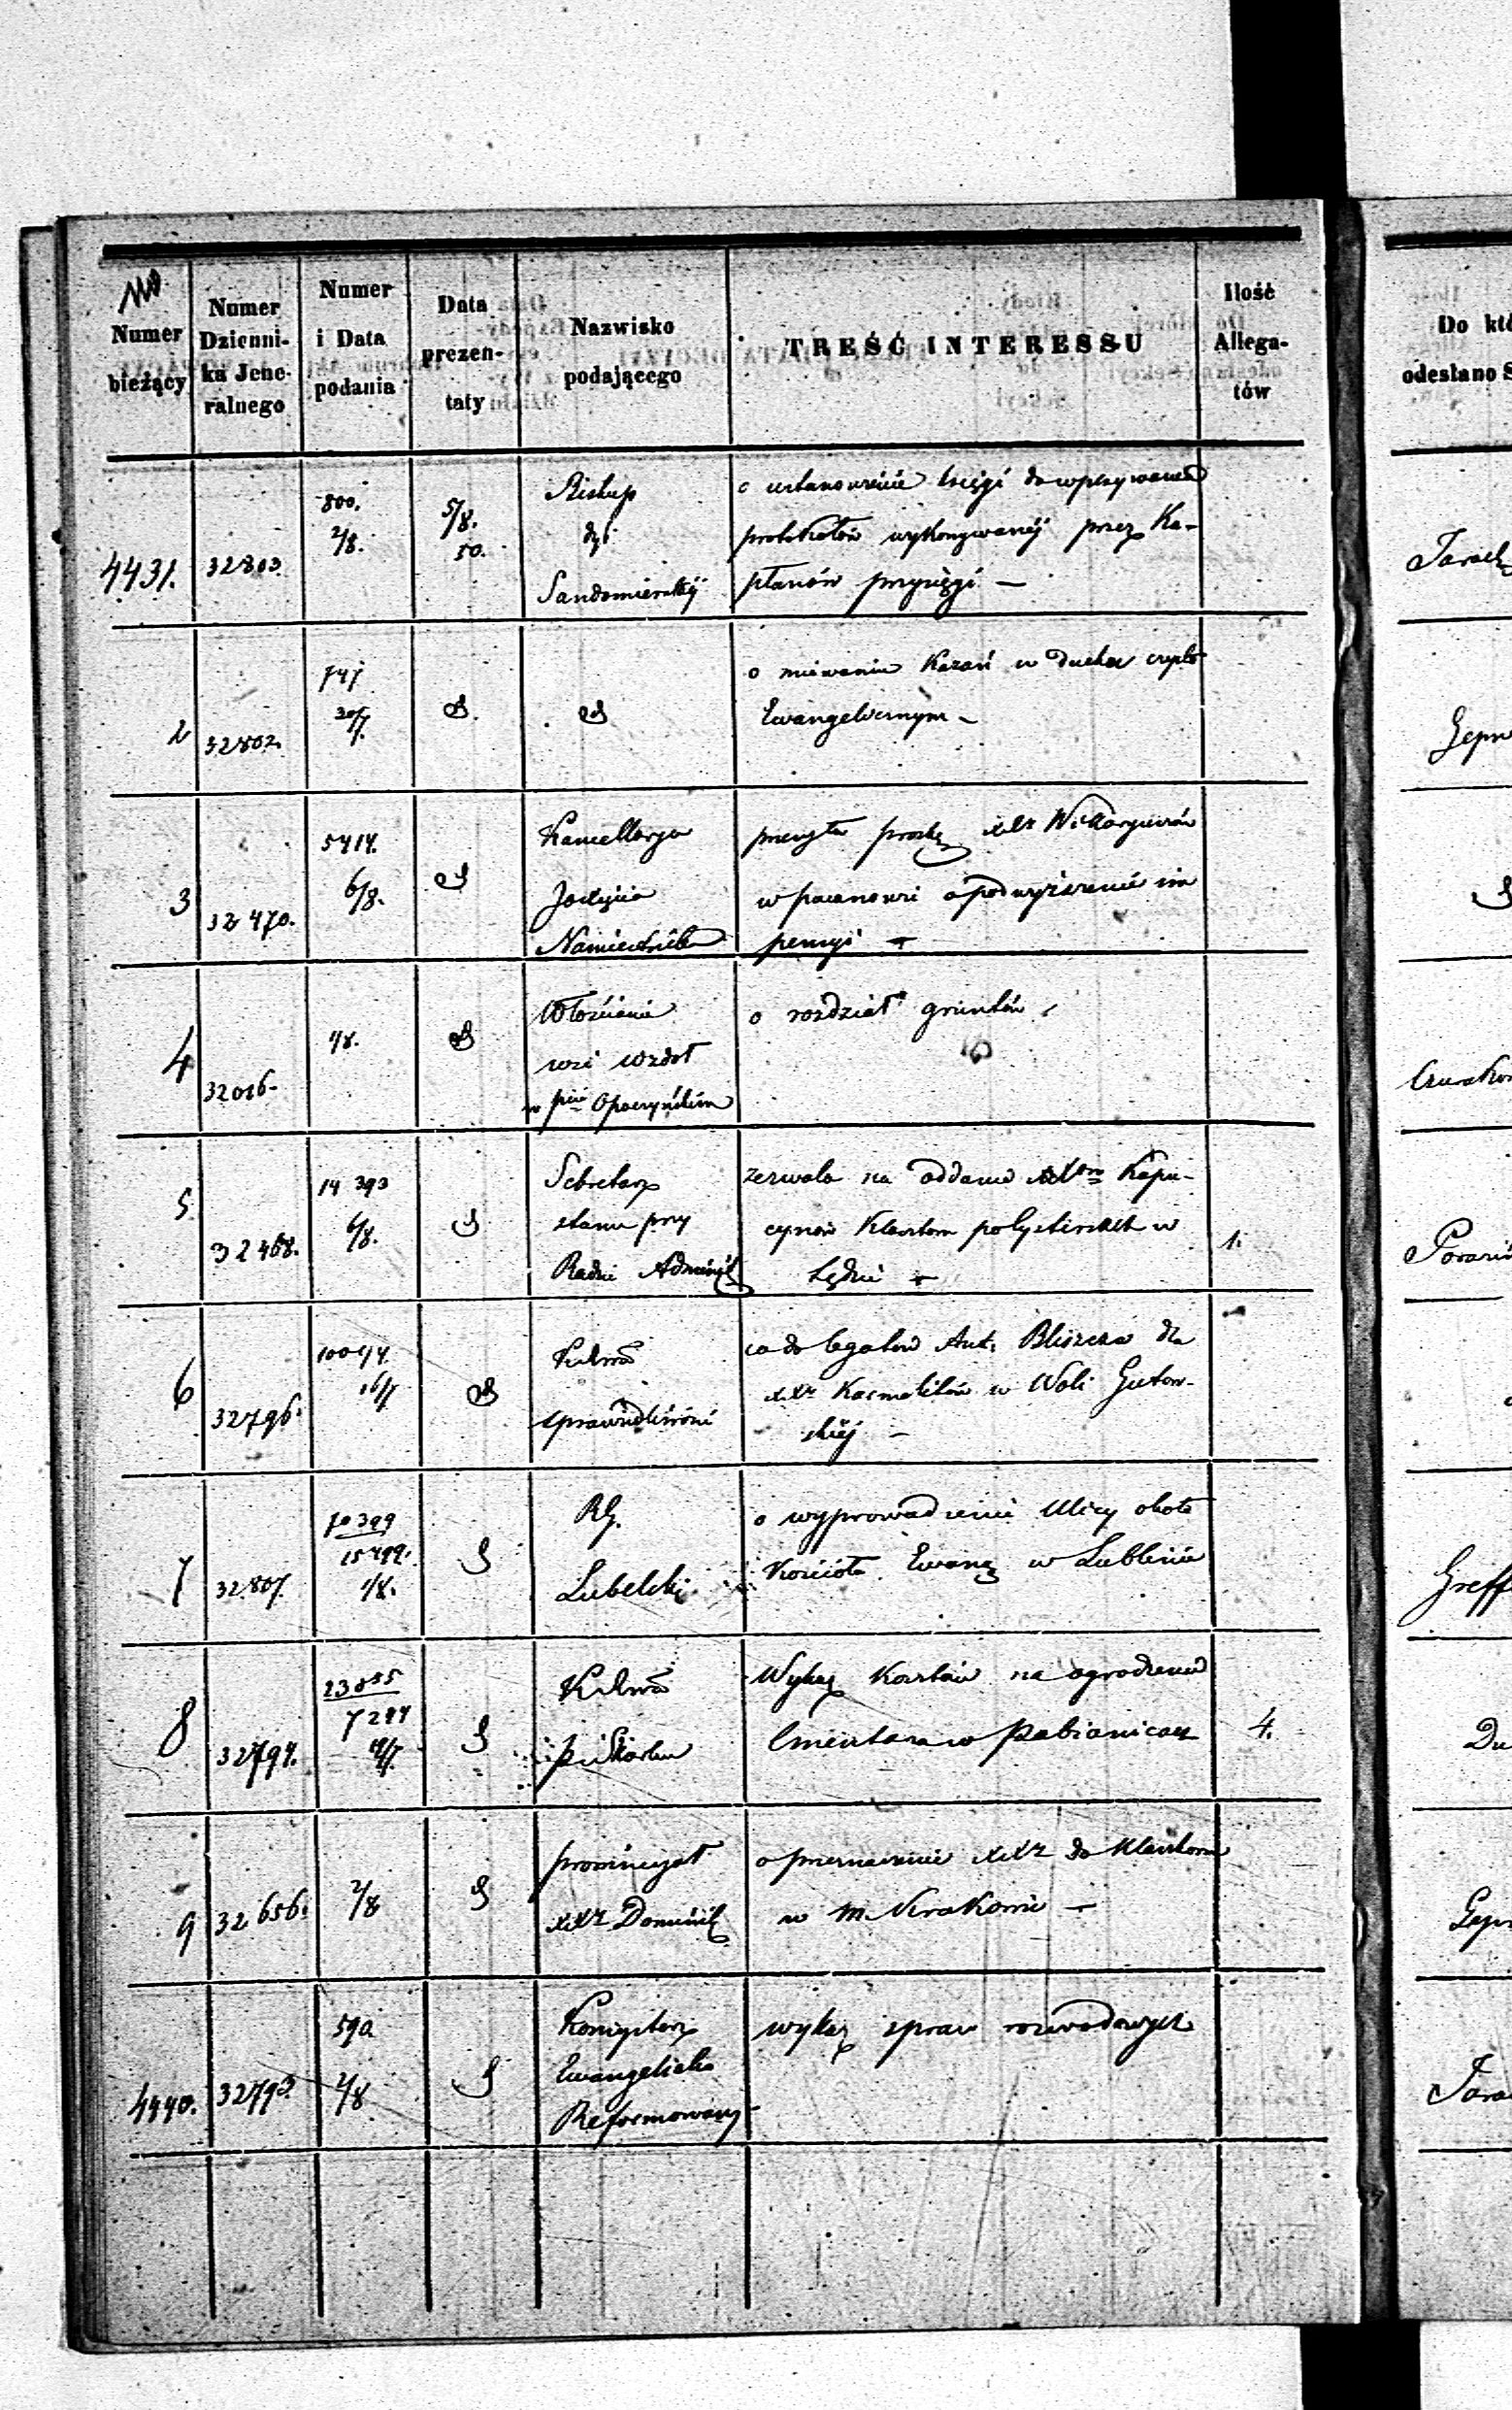 Numer bieżący
Numer Dzienni- ka Jene- ralnego
Numer i Data podania
Data prezen- taty
Nazwisko podającego
TREŚĆ INTERESSU
Ilość Allega- tów
4431. 32803 800. 2/8. 5/8. 50.
Biskup
dyi
Sandomierskij
o ustanowienie księgi do wpisywania
protokołów wykonywanej przez Ka-
płanów przysięgi —
2 32802. 747 30/7.
o miewaniu Kazań w duchu czysto
Ewangelicznym —
3 32470. 5414. 6/8.
Kancellarya
Jego
Namiestnika
przesyła prośbę
w pacanowie o podwyższenie im
pensyi —
4 32016- 1/8.
Włościanie
wsi Wzdoł
w pcie Opoczyńskim
o rozdział gruntów
5 32468. 14393 6/8.
Sekretarz
stanu przy
Radzie Adminis
zezwala na oddanie Kapu-
cynów Klasztor pocysterskich w
Lędzie —
1.
6 32796. 16/7
sprawiedliwości
co do legatów Ant. dla
xx Karmelitów w Woli Gutow-
skiej —
7 32807. 70399 15499. 1/8.
RG.
Lubelski
o wyprowadzenie Ulicy około
Kościoła Ewang w Lublinie
8 32794. 23855 7294
Skarbu
Wykaz Kosztów na ogrodzenie
Cmentarza w Pabianicach
4.
9 32656. 2/8
prowincyał
xx Dominik
o przeznaczenie xx do Klasztoru
w m. Krakowie —
4440. 32793 590 2/8
Konsystorz
Ewangelicko
Reformowany
wykaz spraw rozwodowych
Do któ
odesłano S
Greff